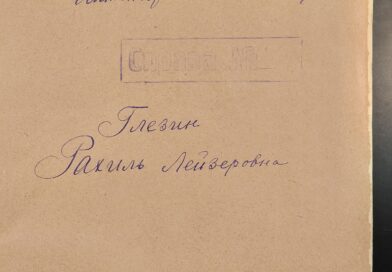 Справа №
Глезин
Рахиль Лейзеровна